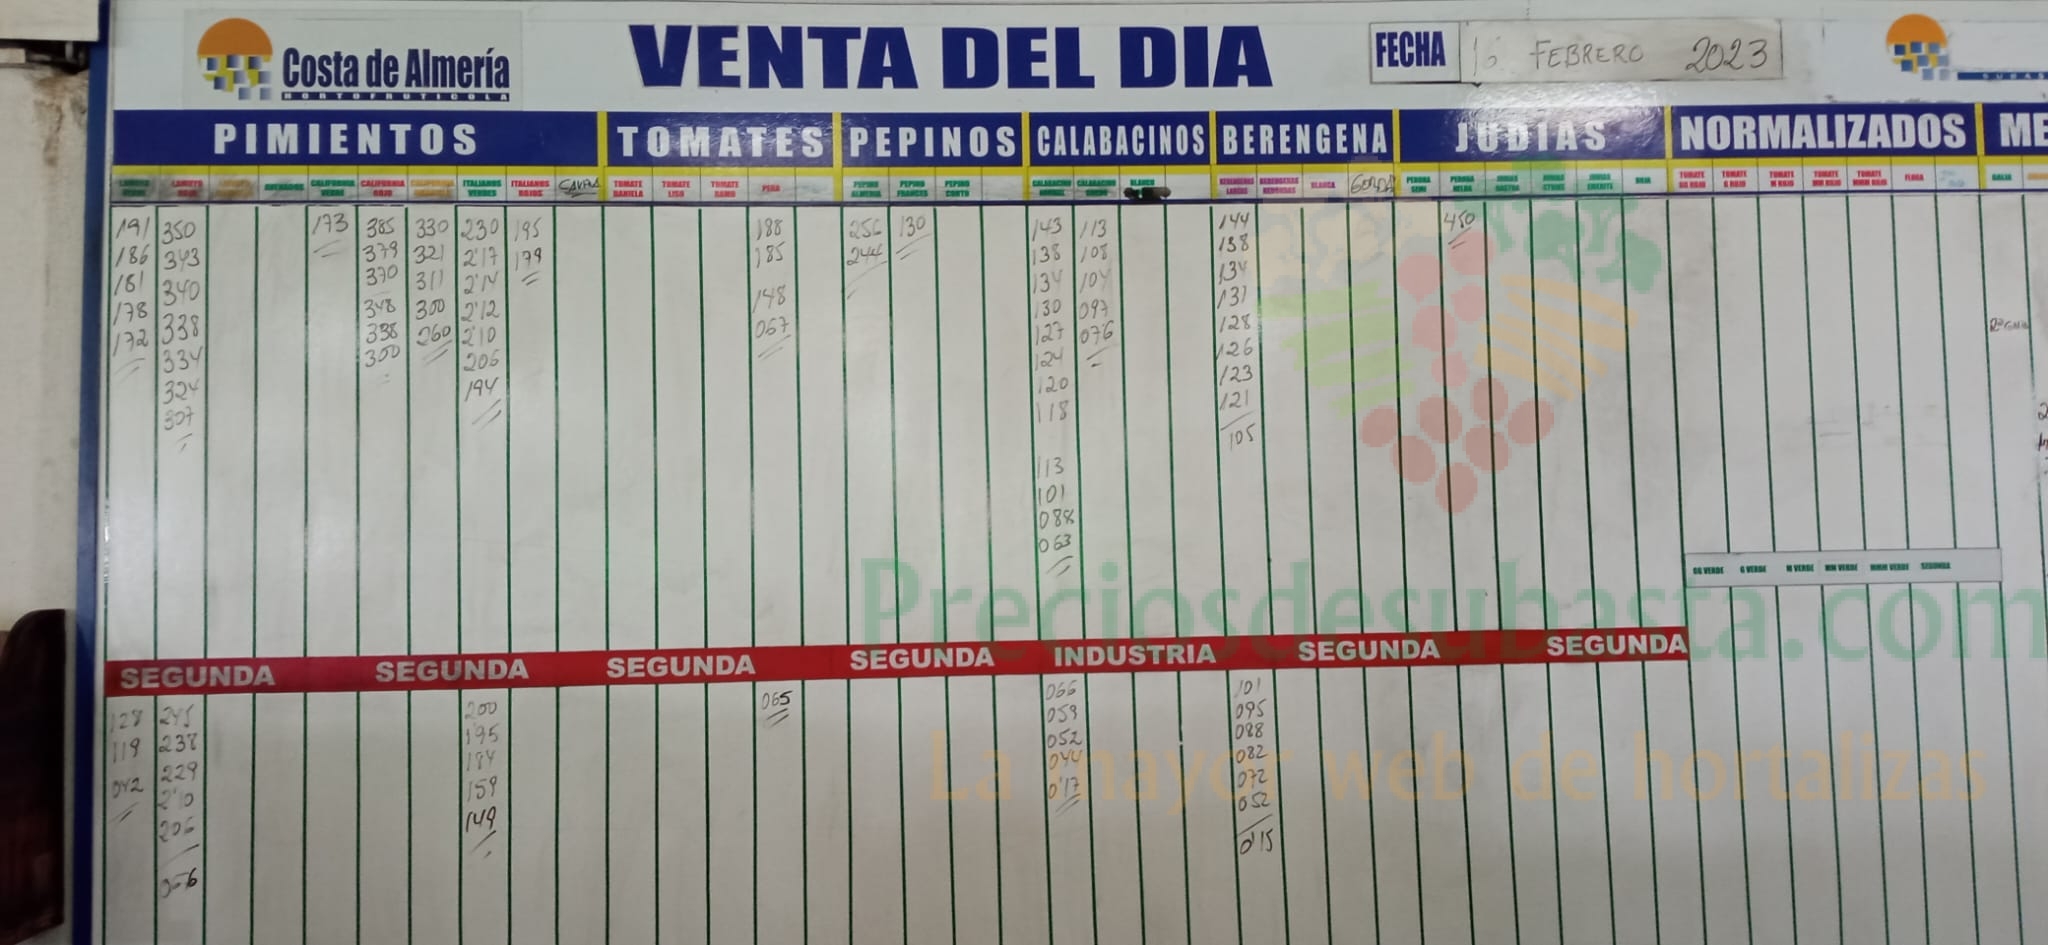 Costa de Almería
HORTOFRUTICOLA
VENTA DEL DIA
FECHA
16 FEBRERO 2023
PIMIENTOS TOMATES PEPINOS CALABACINOS BERENGENA JUDIAS NORMALIZADOS ME
CALIFORNIA VERDE CALIFORNIA ROJO ITALIANOS VERDES ITALIANOS ROJOS TOMATE DANIELA TOMATE LISO TOMATE RAMO PERA PEPINO ALMERIA PEPINO FRANCES PEPINO CORTO BLANCO BLANCA GORDA PERONA SEMI ROJA TOMATE GG ROJO TOMATE G ROJO TOMATE M ROJO TOMATE MM ROJO TOMATE MMM ROJO FLOJA GALIA
191 350 173 385 330 230 195 188 256 130 143 113 144 450
186 343 379 321 2'17 179 185 244 138 108 138
181 340 370 311 2'14 148 134 104 134
178 338 348 300 2'12 067 130 097 131
172 334 338 260 2'10 127 076 128
324 300 206 124 126
307 194 120 123
118 121
105
113
101
088
063
GG VERDE G VERDE M VERDE MM VERDE MMM VERDE SEGUNDA
Preciosdesubasta.com
SEGUNDA SEGUNDA SEGUNDA SEGUNDA INDUSTRIA SEGUNDA SEGUNDA
128 245 200 065 066 101
119 238 195 059 095
042 229 184 052 088
2'10 159 044 082
206 149 0'17 072
056 052
0'15
La mayor web de hortalizas